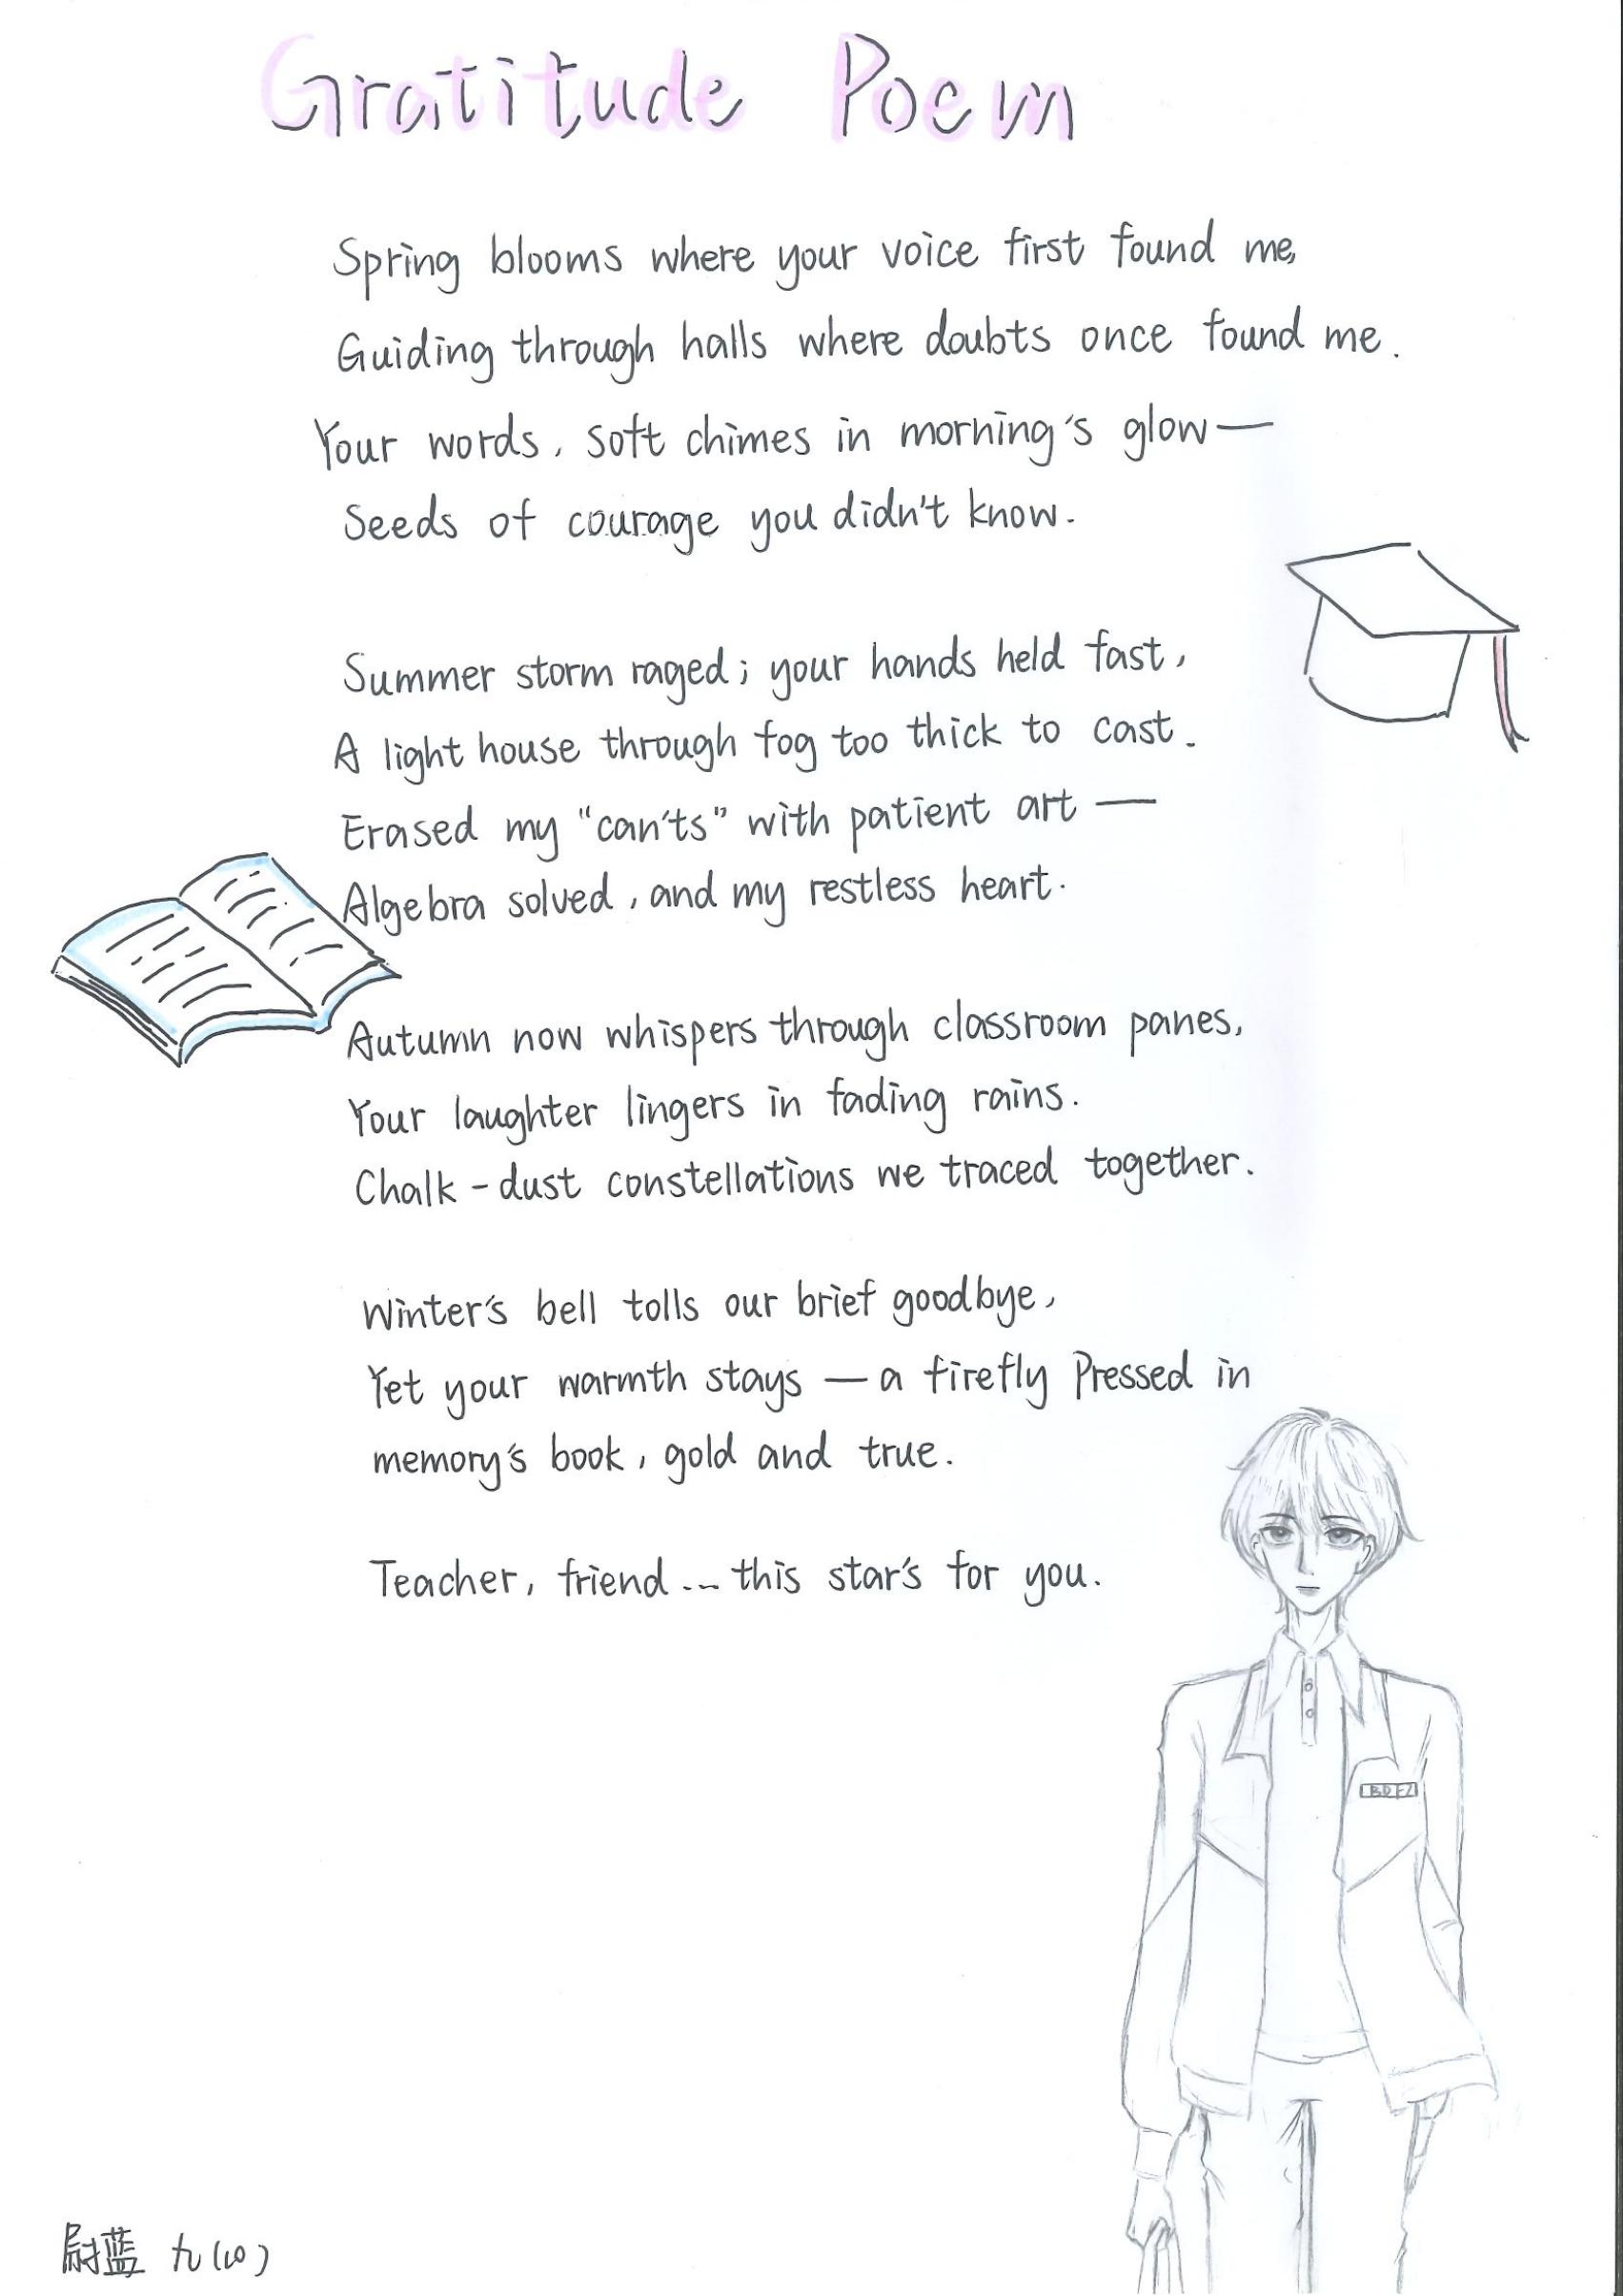 Gratitude Poem
Spring blooms where your voice first found me,
Guiding through halls where doubts once found me.
Your words, soft chimes in morning's glow—
Seeds of courage you didn't know.
Summer storm raged; your hands held fast,
A light house through fog too thick to cast.
Erased my "can'ts" with patient art—
Algebra solved, and my restless heart.
Autumn now whispers through classroom panes,
Your laughter lingers in fading rains.
Chalk-dust constellations we traced together.
Winter's bell tolls our brief goodbye,
Yet your warmth stays—a firefly Pressed in
memory's book, gold and true.
Teacher, friend... this star's for you.
BDFZ
尉蓝 九(10)